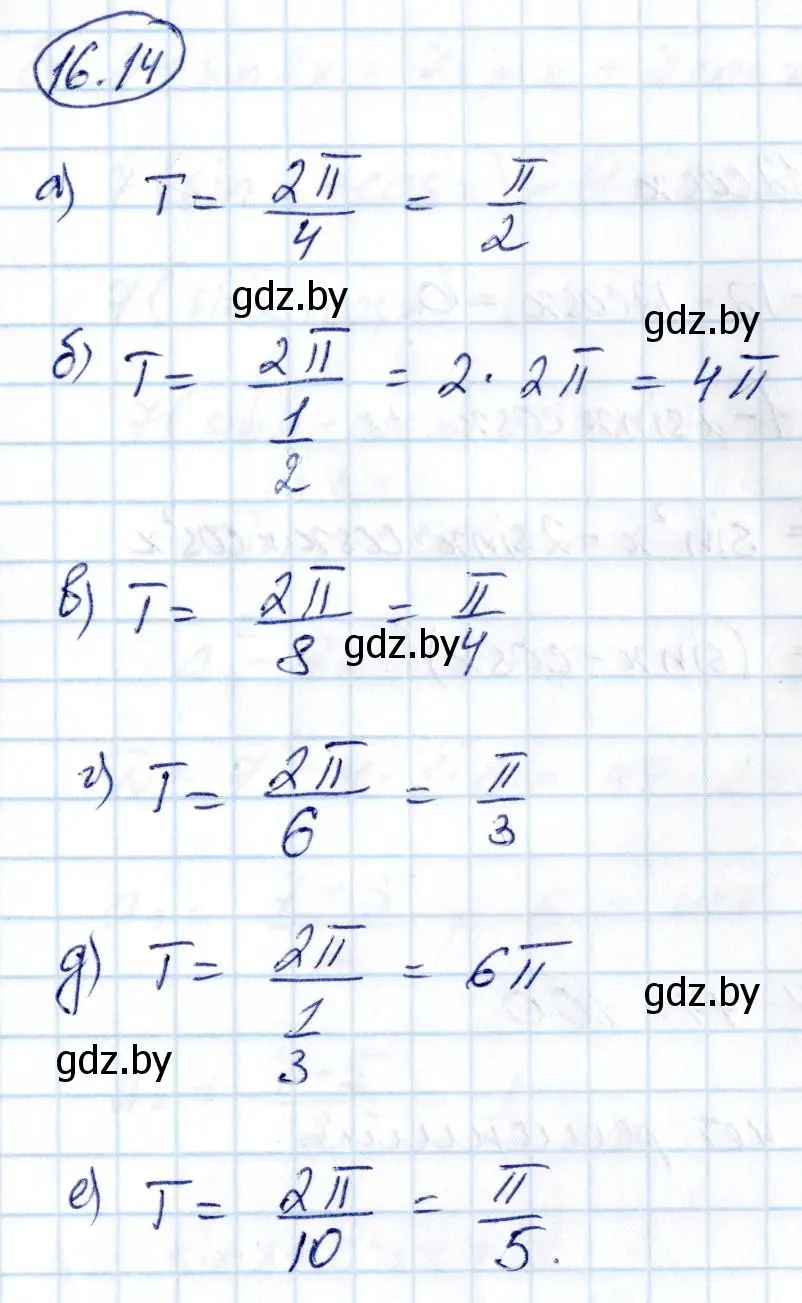 16.14
а) T = 2π/4 = π/2
gdz.by
gdz.by
б) T = 2π/(1/2) = 2 · 2π = 4π
в) T = 2π/8 = π/4
gdz.by
г) T = 2π/6 = π/3
д) T = 2π/(1/3) = 6π
gdz.by
gdz.by
е) T = 2π/10 = π/5.